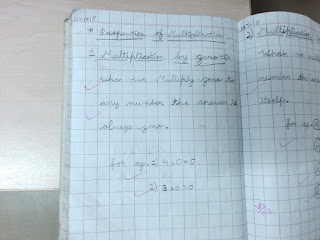 * Properties of Multiplication
1 Multiplication by zero :-
when we Multiply zero to
any number the answer is
always zero.
for eg.= 1) 4 x 0 = 0
2) 3 x 0 = 0
2) Multiplication
when we
number the
itself.
for eg.